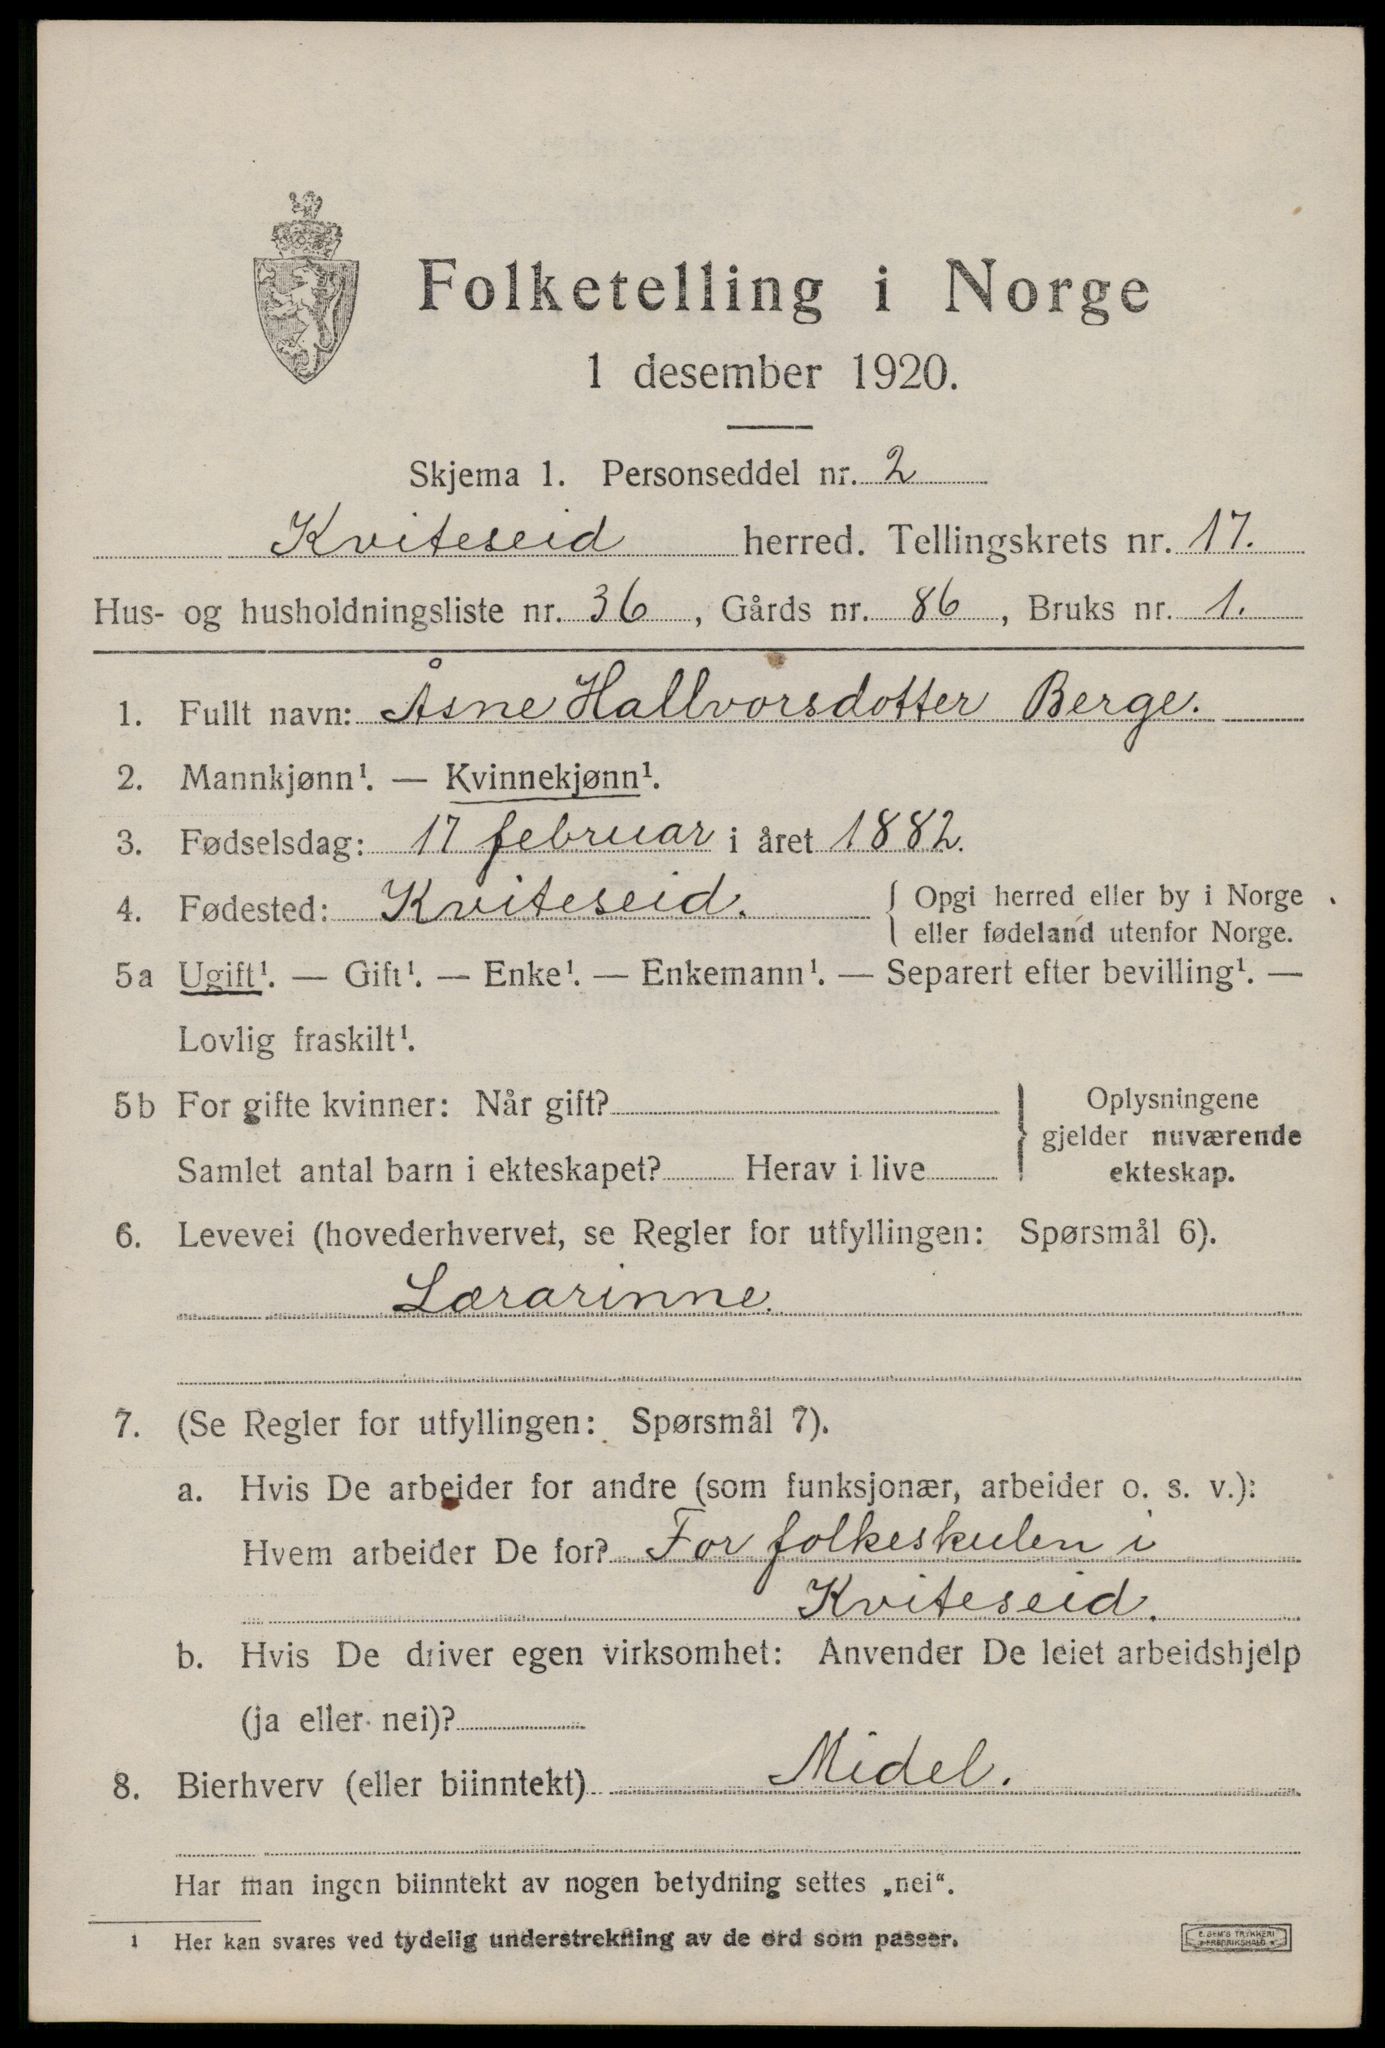 Folketelling i Norge
1 desember 1920.
Skjema 1. Personseddel nr. 2
Kviteseid herred. Tellingskrets nr. 17.
Hus- og husholdningsliste nr. 36, Gårds nr. 86, Bruks nr. 1.
1. Fullt navn: Åsne Hallvorsdotter Berge.
2. Mannkjønn¹. — Kvinnekjønn¹.
3. Fødselsdag: 17 februar i året 1882.
4. Fødested: Kviteseid. { Opgi herred eller by i Norge
eller fødeland utenfor Norge.
5a Ugift¹. — Gift¹. — Enke¹. — Enkemann¹. — Separert efter bevilling¹. —
Lovlig fraskilt¹.
5b For gifte kvinner: Når gift?
Samlet antal barn i ekteskapet? Herav i live
} Oplysningene
gjelder nuværende
ekteskap.
6. Levevei (hovederhvervet, se Regler for utfyllingen: Spørsmål 6).
Lærarinne.
7. (Se Regler for utfyllingen: Spørsmål 7).
a. Hvis De arbeider for andre (som funksjonær, arbeider o. s. v.):
Hvem arbeider De for? For folkeskulen i
Kviteseid.
b. Hvis De driver egen virksomhet: Anvender De leiet arbeidshjelp
(ja eller nei)?
8. Bierhverv (eller biinntekt) Midel.
Har man ingen biinntekt av nogen betydning settes „nei“.
¹ Her kan svares ved tydelig understrekning av de ord som passer.
E. SEM'S TRYKKERI
FREDRIKSHALD